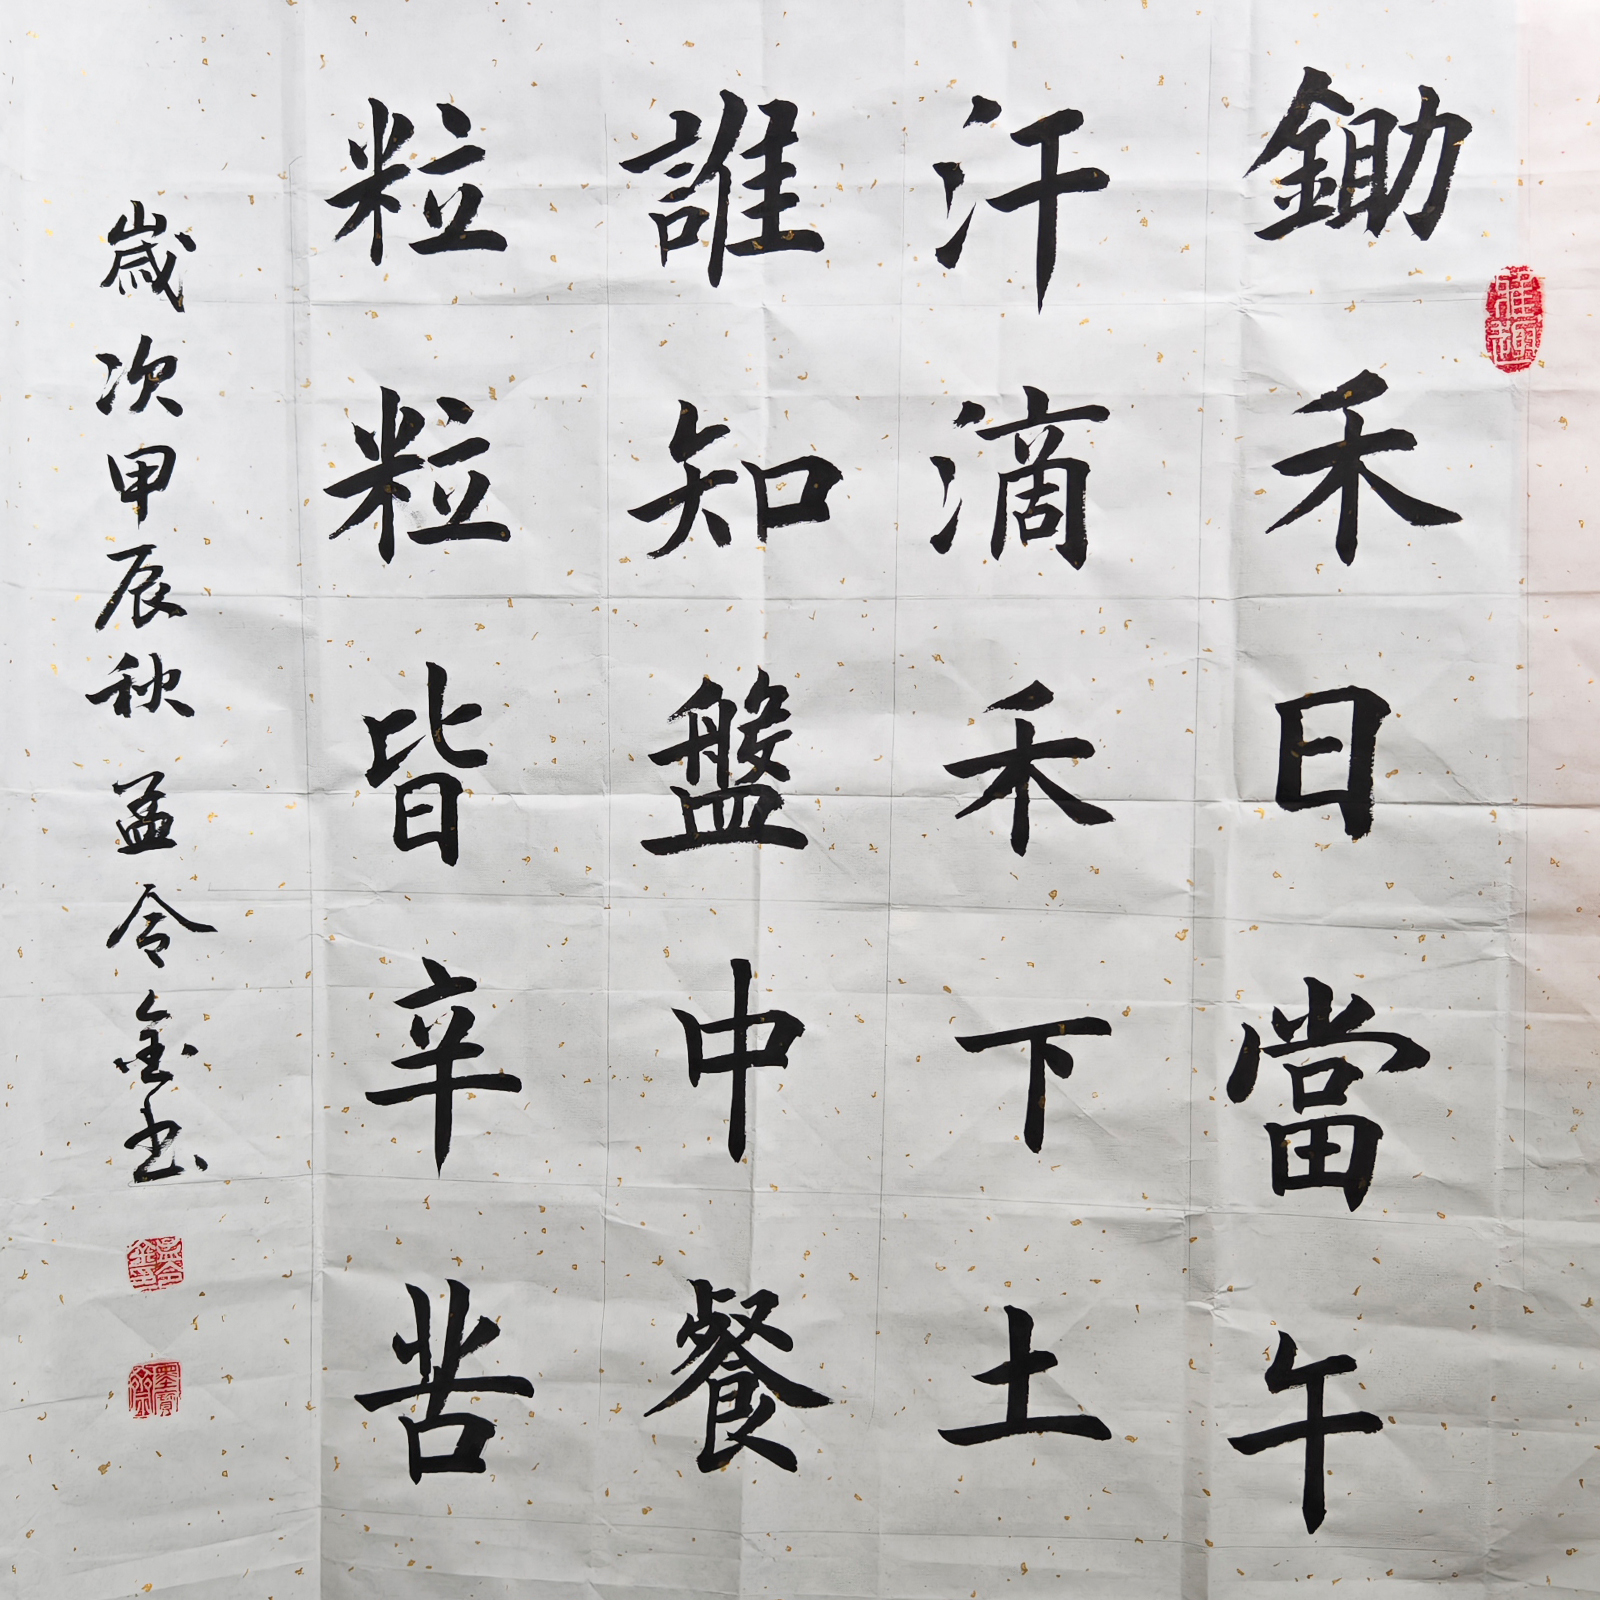 鋤禾日當午
汗滴禾下土
誰知盤中餐
粒粒皆辛苦
歲次甲辰秋 孟令金书
雅趣
孟令金印